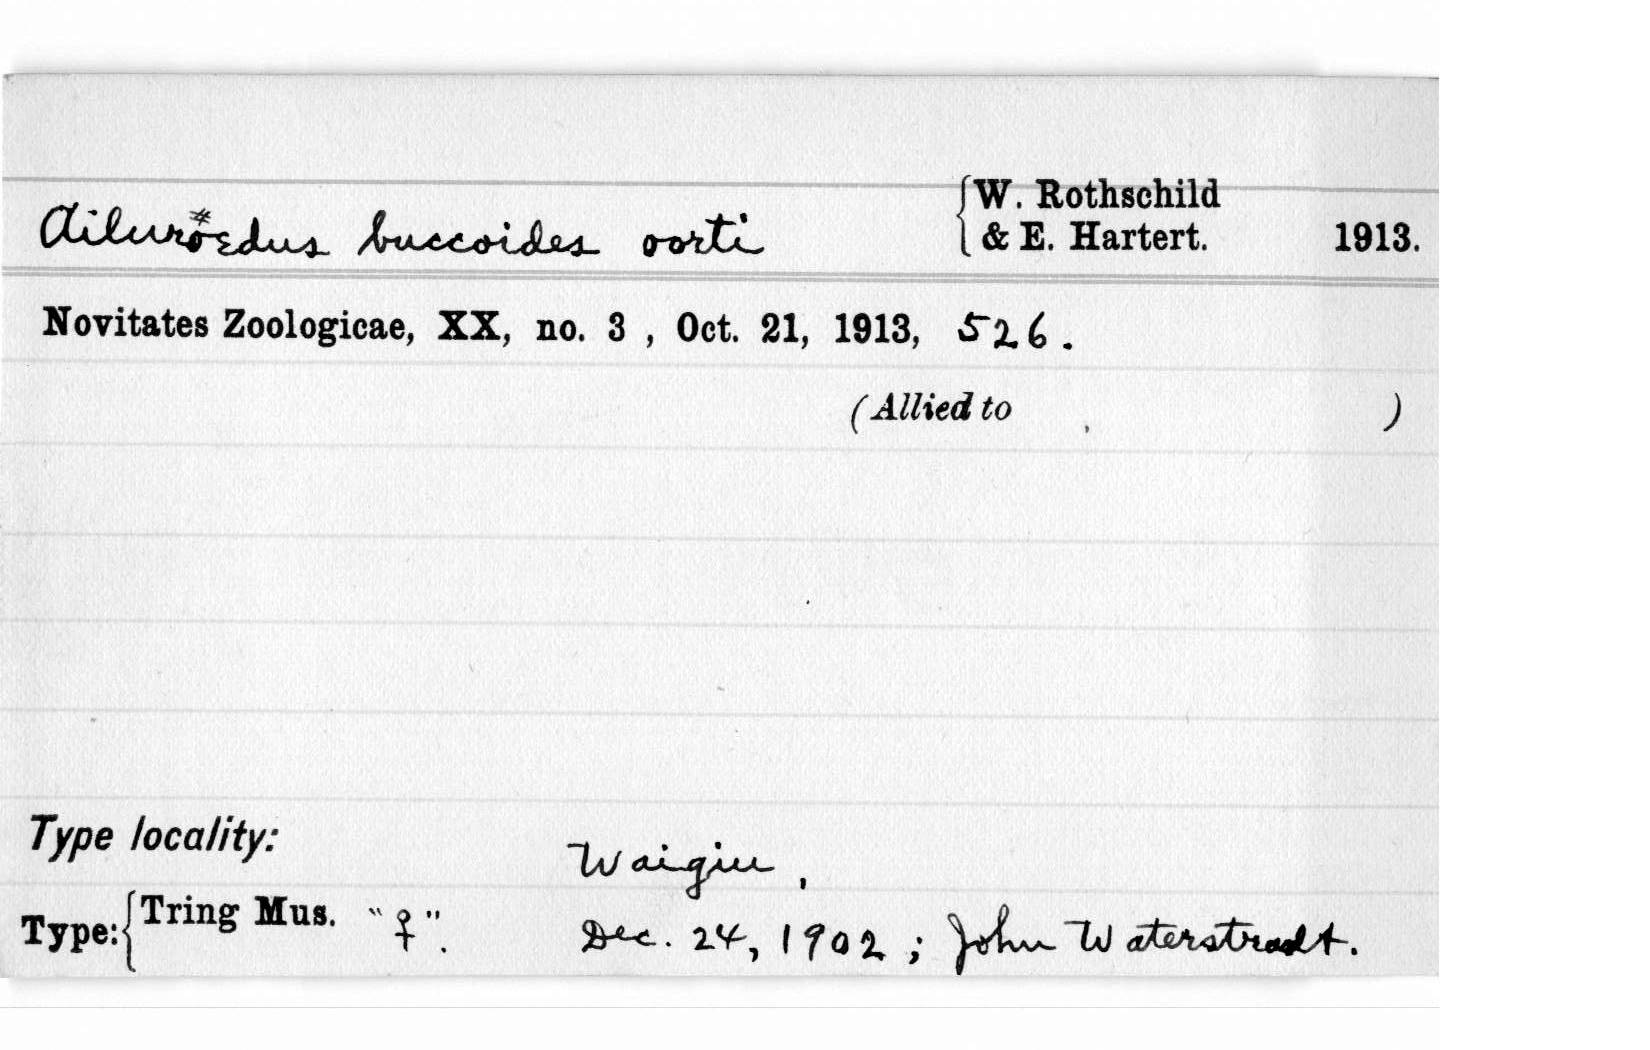 Ailurœdus buccoides oorti { W. Rothschild & E. Hartert. 1913.
Novitates Zoologicae, XX, no. 3 , Oct. 21, 1913, 526.
(Allied to , )
Type locality: Waigiu,
Type: { Tring Mus. "♀". Dec. 24, 1902 ; John Waterstradt.